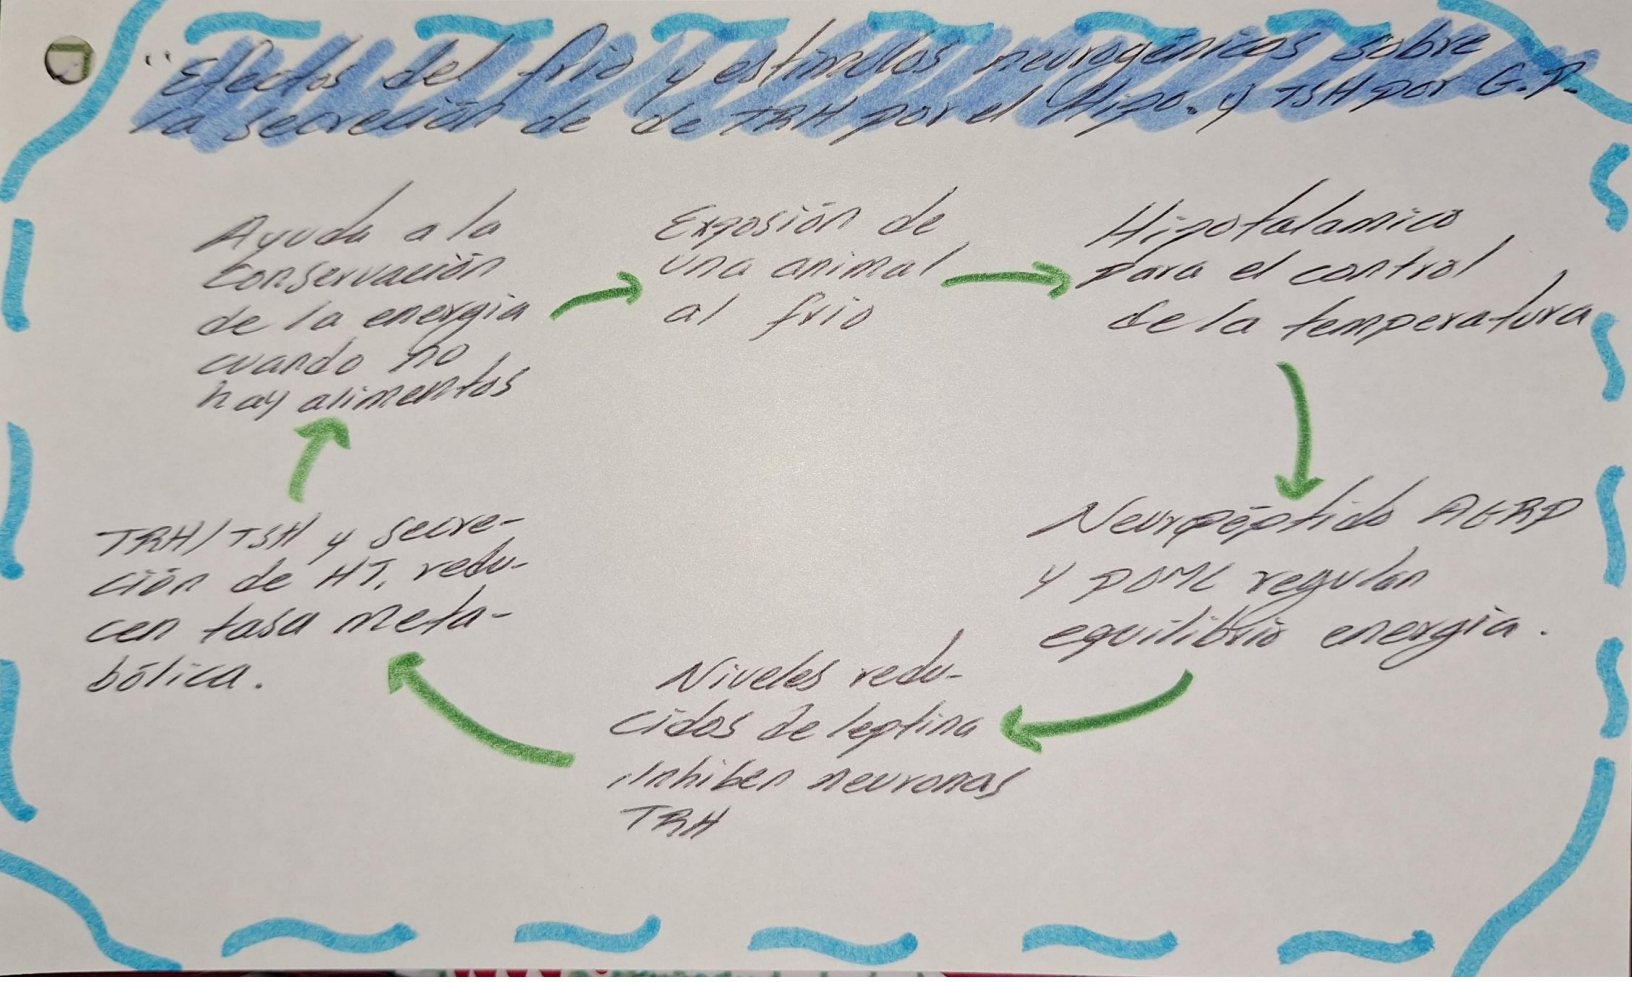 "Efectos del frio y estimulos neurogénicos sobre
la secreción de de TRH por el Hipo. y TSH por G.P.
Ayuda a la
conservación
de la energia
cuando no
hay alimentos
Exposión de
una animal
al frio
Hipotalamico
para el control
de la temperatura
Neuropéptido AGRP
y POMC regulan
equilibrio energia.
Niveles redu-
cidos de leptina
inhiben neuronas
TRH
TRH/TSH y secre-
ción de HT, redu-
cen tasa meta-
bólica.